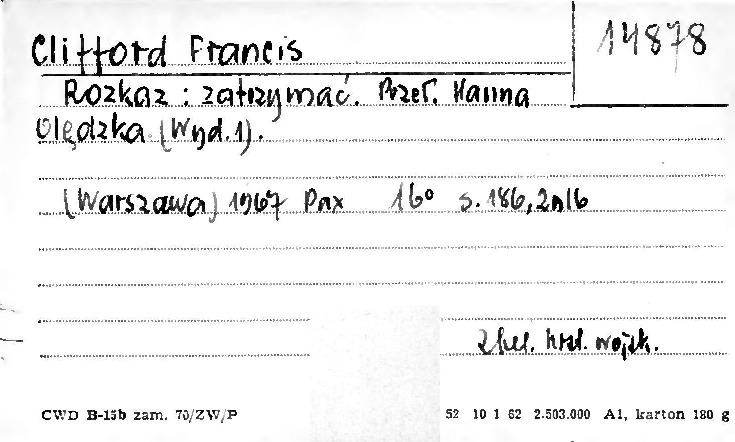 Clifford Francis
14878
Rozkaz : zatrzymać. Przeł. Hanna
Olędzka (Wyd.1).
(Warszawa) 1967 Pax 16° s. 186, 2nlb
hist. wojsk.
CWD B-15b zam. 70/ZW/P
52 10 1 62 2.503.000 A1, karton 180 g